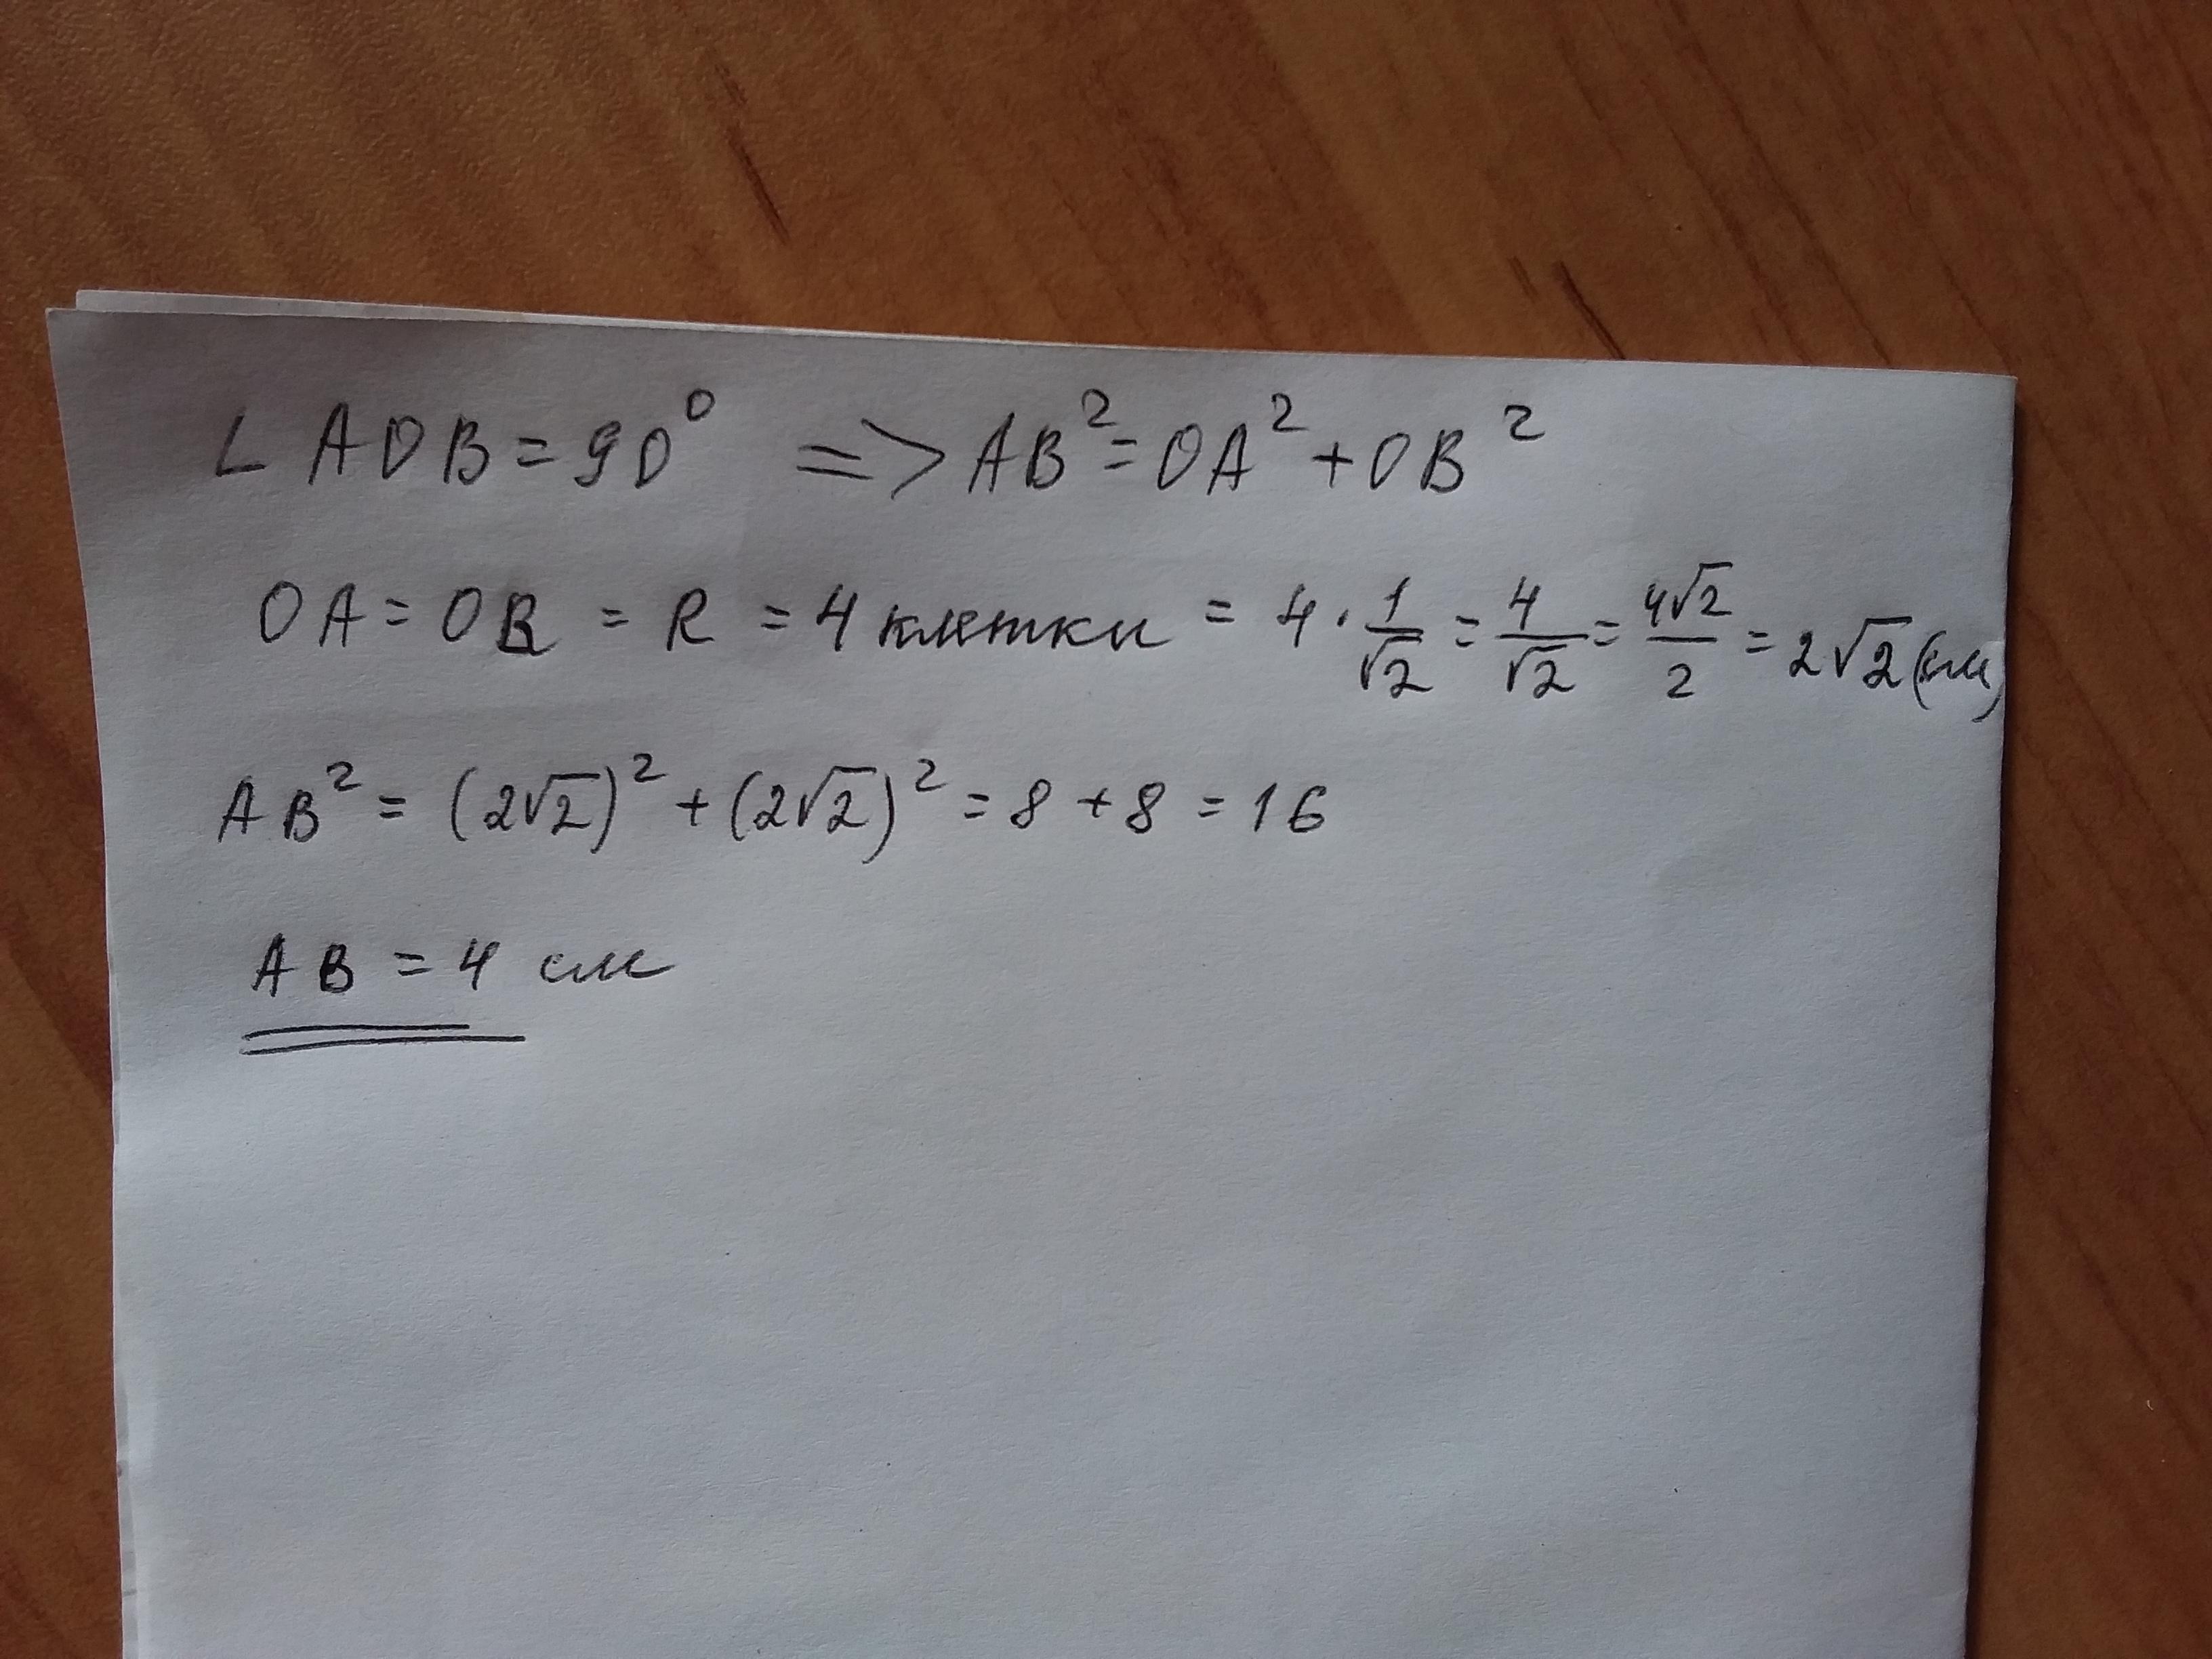 ∠ AOB = 90⁰ => AB² = OA² + OB²
OA = OB = R = 4 клетки = 4 · 1/√2 = 4/√2 = 4√2/2 = 2√2 (см)
AB² = (2√2)² + (2√2)² = 8 + 8 = 16
AB = 4 см